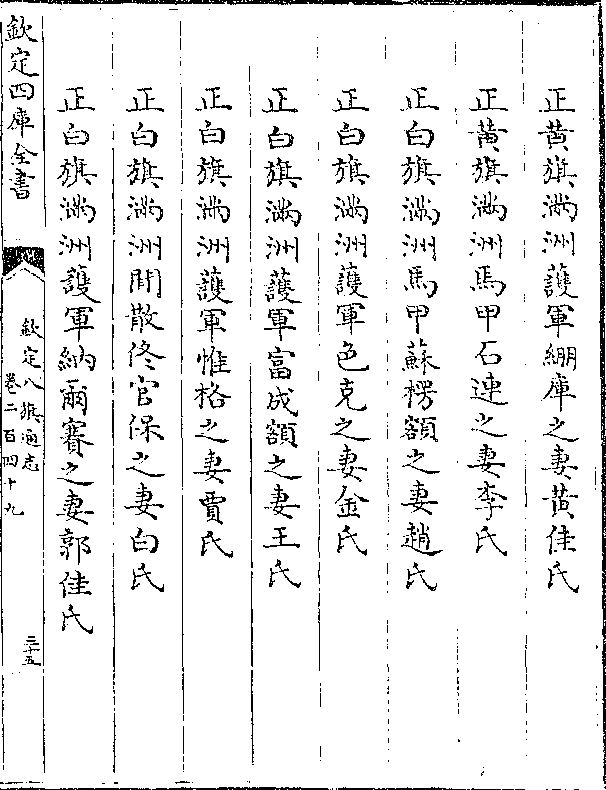 正黄旗滿洲護軍綳庫之妻黄佳氏
正黄旗滿洲馬甲石連之妻李氏
正白旗滿洲馬甲蘇楞額之妻趙氏
正白旗滿洲護軍色克之妻金氏
正白旗滿洲護軍富成額之妻王氏
正白旗滿洲護軍惟格之妻賈氏
正白旗滿洲閒散佟官保之妻白氏
正白旗滿洲護軍納爾賽之妻郭佳氏
欽定四庫全書
欽定八旗通志
卷二百四十九
三十五